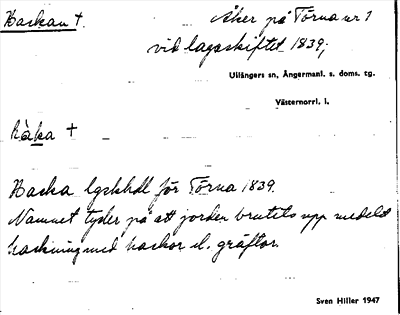 Haskan †.
Åker på Törna nr 1
vid lagaskiftet 1839;
Ullångers sn, Ångermanl. s. doms. tg.
Västernorrl. l.
hàka †
Haska lgskhdl för Törna 1839.
Namnet tyder på att jorden brutits upp medelst
haskning med haskor el. gräftor.
Sven Hiller 1947